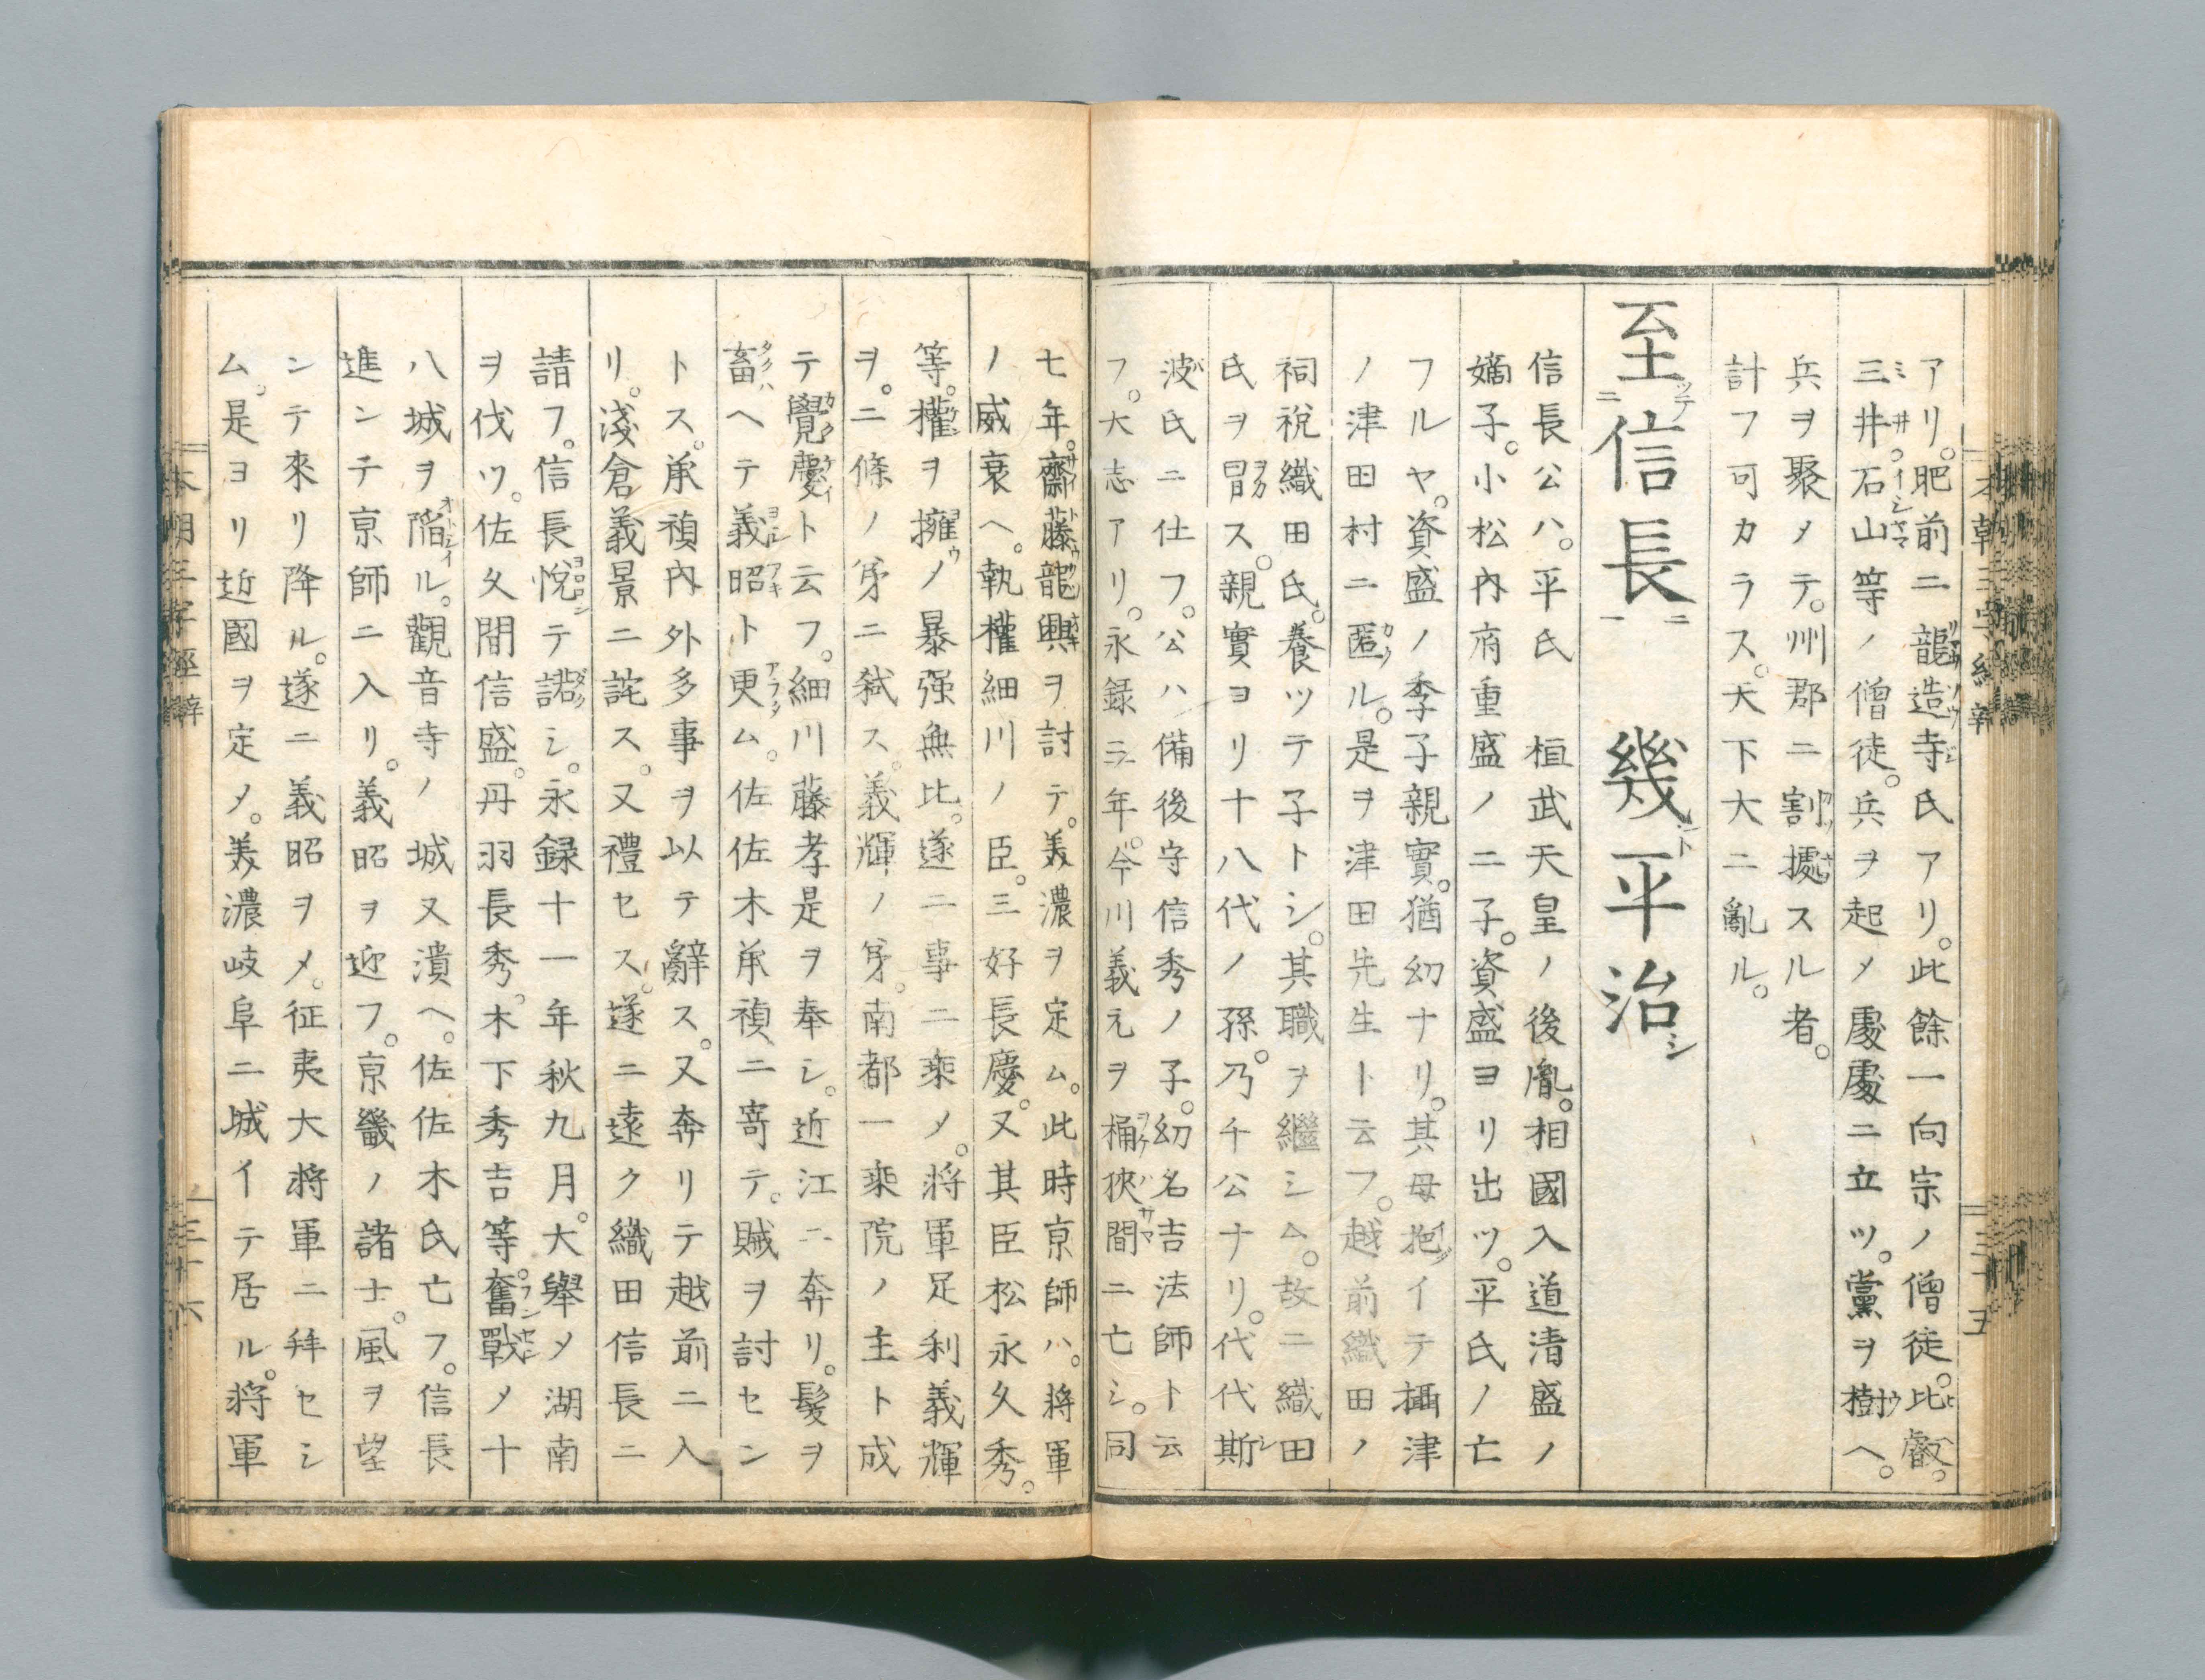 アリ。肥前ニ龍造寺氏アリ。此餘一向宗ノ僧徒。比叡。
三井。石山等ノ僧徒。兵ヲ起メ處處ニ立ツ。黨ヲ樹ヘ。
兵ヲ聚メテ。州郡ニ割據スル者。
計フ可カラス。天下大ニ亂ル。
至信長 幾平治
信長公ハ。平氏 桓武天皇ノ後胤。相國入道清盛ノ
嫡子。小松內府重盛ノ二子。資盛ヨリ出ツ。平氏ノ亡
フルヤ。資盛ノ季子親實。猶幼ナリ。其母抱イテ攝津
ノ津田村ニ匿ル。是ヲ津田先生ト云フ。越前織田ノ
祠祝織田氏。養ツテ子トシ。其職ヲ繼シム。故ニ織田
氏ヲ冒ス。親實ヨリ十八代ノ孫。乃チ公ナリ。代代斯
波氏ニ仕フ。公ハ備後守信秀ノ子。幼名吉法師ト云
フ。大志アリ。永録三年。今川義元ヲ桶狹間ニ亡シ。同
七年。齋藤龍興ヲ討テ。美濃ヲ定ム。此時京師ハ。將軍
ノ威衰ヘ。執權細川ノ臣。三好長慶。又其臣松永久秀。
等。權ヲ擁ノ暴强無比。遂ニ事ニ乘メ。將軍足利義輝
ヲ。二條ノ第ニ弑ス。義輝ノ弟。南都一乘院ノ主ト成
テ覺慶ト云フ。細川藤孝是ヲ奉シ。近江ニ奔リ。髮ヲ
畜ヘテ義昭ト更ム。佐佐木承禎ニ寄テ。賊ヲ討セン
トス。承禎內外多事ヲ以テ辭ス。又奔リテ越前ニ入
リ。淺倉義景ニ詫ス。又禮セス。遂ニ遠ク織田信長ニ
請フ。信長悅テ諾シ。永録十一年秋九月。大擧メ湖南
ヲ伐ツ。佐久間信盛。丹羽長秀。木下秀吉等。奮戰メ十
八城ヲ陷ル。觀音寺ノ城又潰ヘ。佐佐木氏亡フ。信長
進ンテ京師ニ入リ。義昭ヲ迎フ。京畿ノ諸士。風ヲ望
ンテ來リ降ル。遂ニ義昭ヲメ。征夷大將軍ニ拜セシ
ム。是ヨリ近國ヲ定メ。美濃岐阜ニ城イテ居ル。將軍